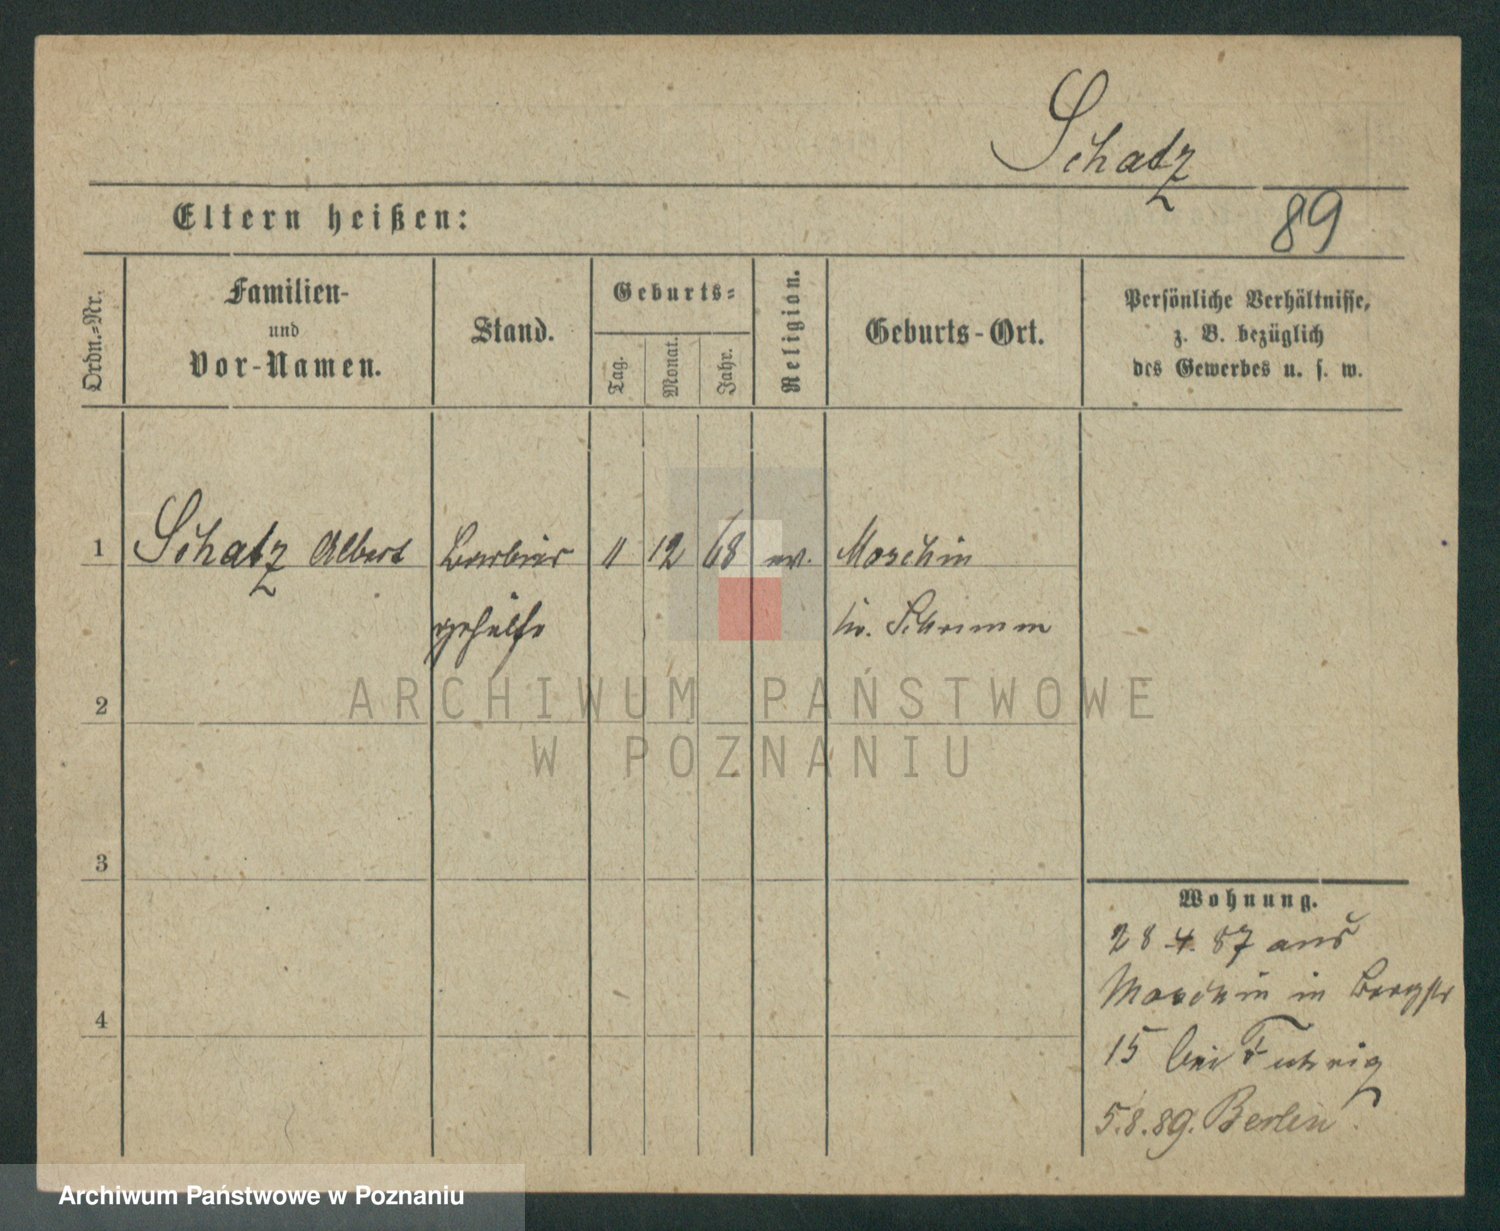 Schatz
Eltern heißen:
89
Ordn.-Nr.
Familien-
und
Vor-Namen.
Stand.
Geburts-
Tag.
Monat.
Jahr.
Religion.
Geburts-Ort.
Persönliche Verhältnisse,
z. B. bezüglich
des Gewerbes u. s. w.
1 Schatz Albert Barbier 11 12 68 ev. Moschin
gehülfe Kr. Schrimm
2
3
4
Wohnung.
28.4.87 aus
Moschin in Bergstr
15 bei Fuhrig
5.8.89. Berlin
ARCHIWUM PAŃSTWOWE
W POZNANIU
Archiwum Państwowe w Poznaniu